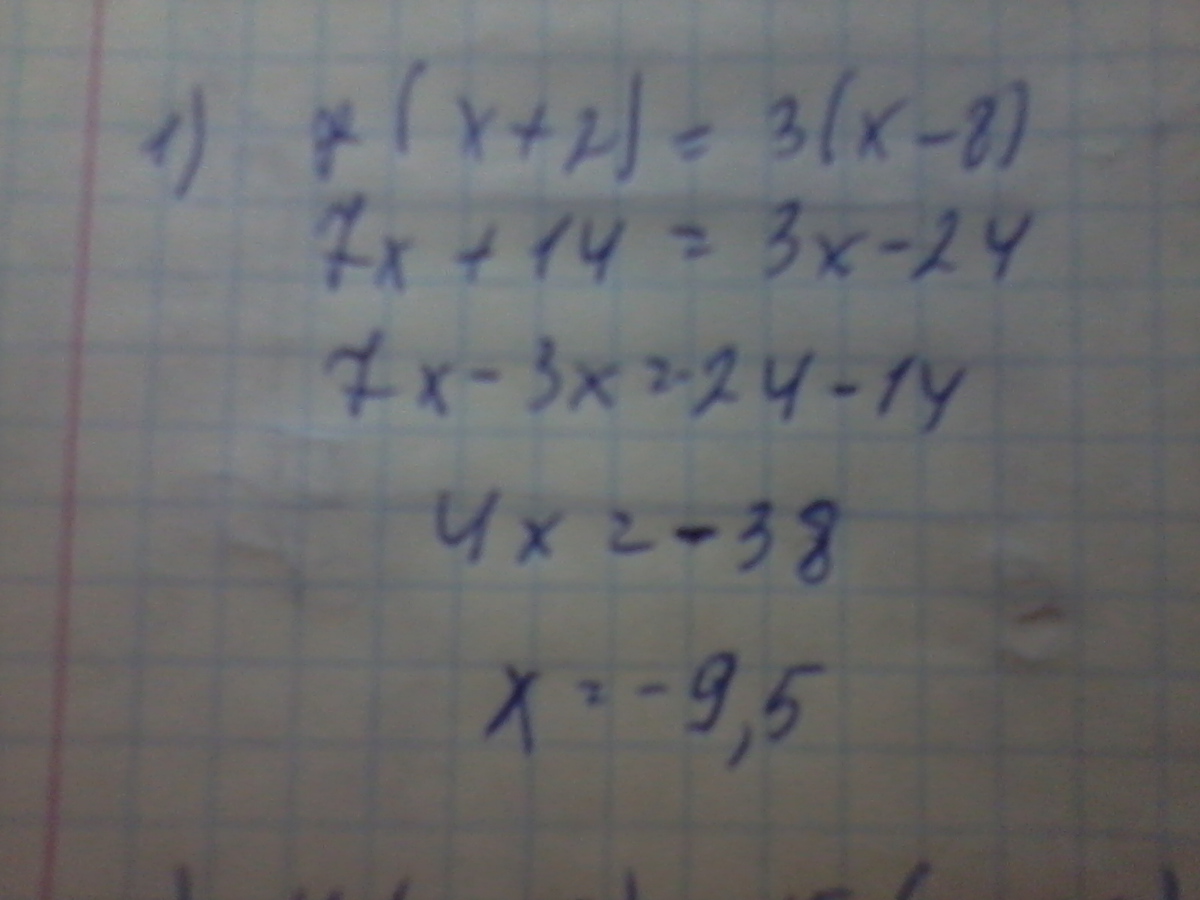 1) 7(x+2) = 3(x-8)
7x + 14 = 3x-24
7x - 3x = -24-14
4x = -38
x = -9,5